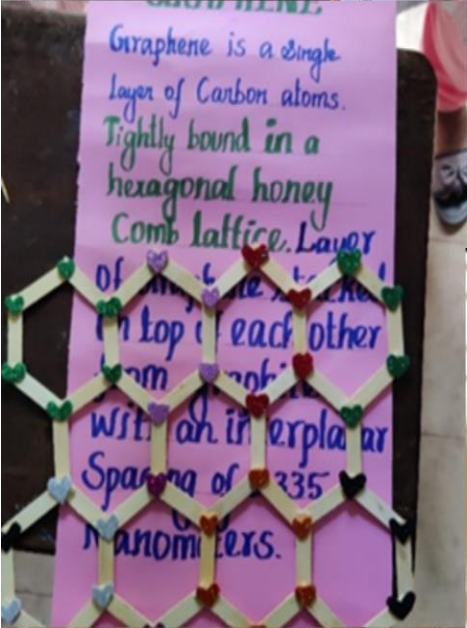 GRAPHENE
Graphene is a single
layer of Carbon atoms.
Tightly bound in a
hexagonal honey
Comb lattice. Layer
of stacked
on top of each other
from
with an interplanar
Spacing of 335
Nanometers.